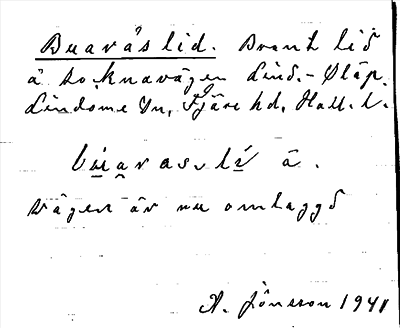 Buaråslid. Brant lid
å socknavägen Lind.-Släp.
Lindome Sn, Fjäre hd, Hall. l.
bu̱arasləḻí a.
Vägen är nu omlaggd
A. Jönsson 1941